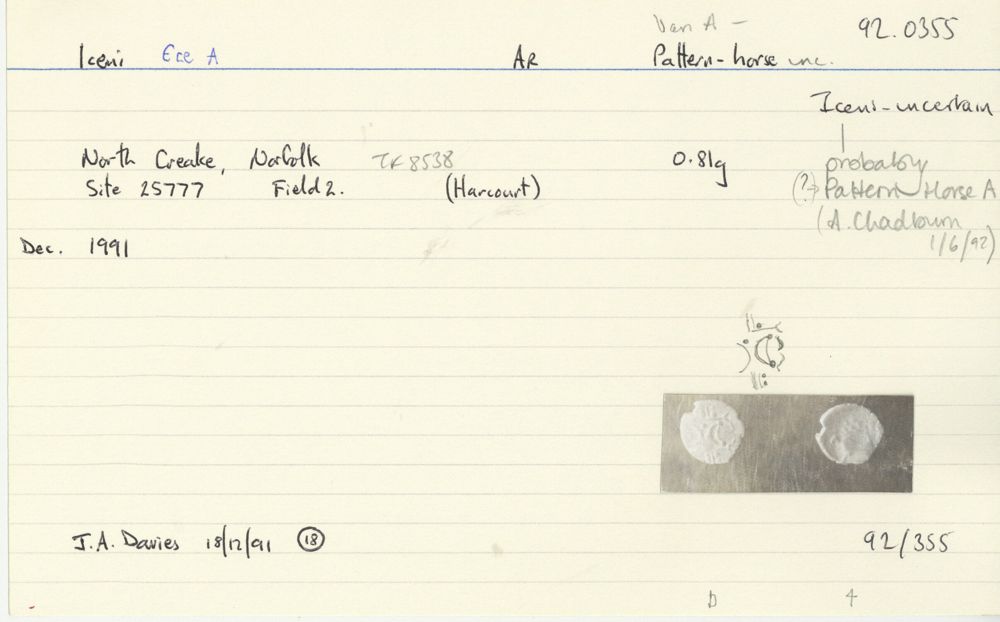 Van A - 92.0355
Iceni Ece A AR Pattern-horse unc.
Iceni-uncertain
North Creake, Norfolk TF 8538 0.81g probably
Site 25777 Field 2. (Harcourt) (?→ Pattern-Horse A
(A. Chadburn
Dec. 1991 1/6/92)
J.A. Davies 18/12/91 18 92/355